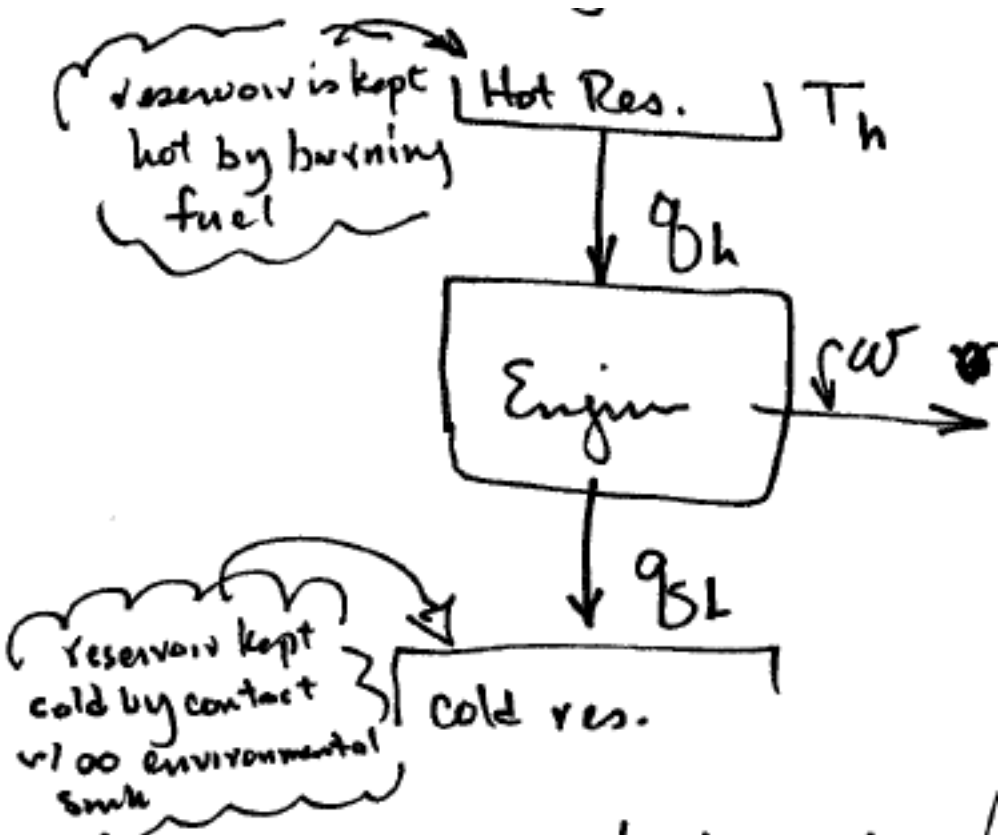 reservoir is kept
hot by burning
fuel
Hot Res.
T_h
q_h
Engine
w
q_L
reservoir kept
cold by contact
w/ ∞ environmental
sink
cold res.